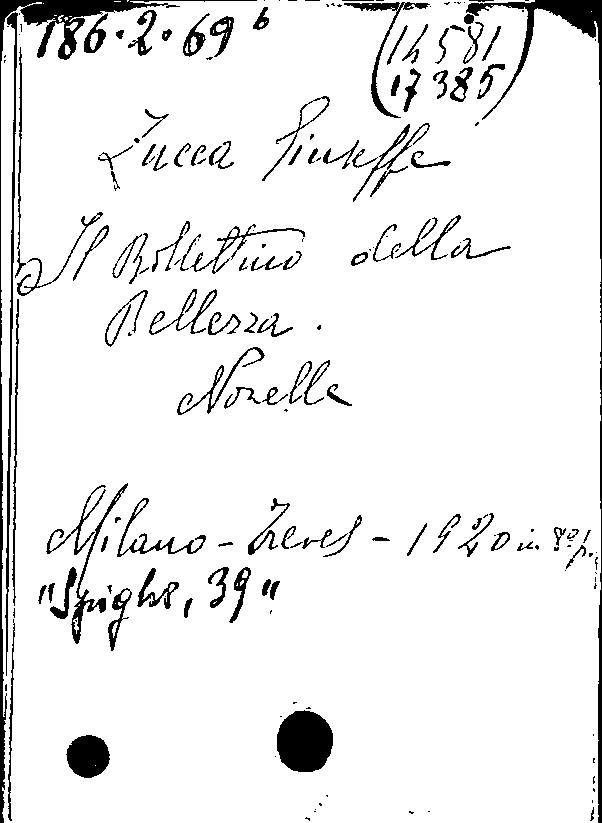 186.2.69 b
(14581
17385)
Zucca Giuseppe
Il Bollettino della
Bellezza.
Novelle
Milano - Treves - 1920 in 8º p.
"Spighe, 39"